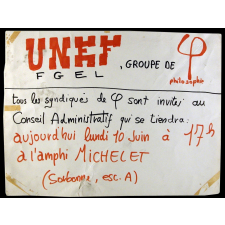 UNEF
FGEL, GROUPE DE φ
philosophie
tous les syndiqués de φ sont invités au
Conseil Administratif qui se tiendra:
aujourd'hui lundi 10 juin à 17h
à l'amphi MICHELET
(Sorbonne, esc. A)